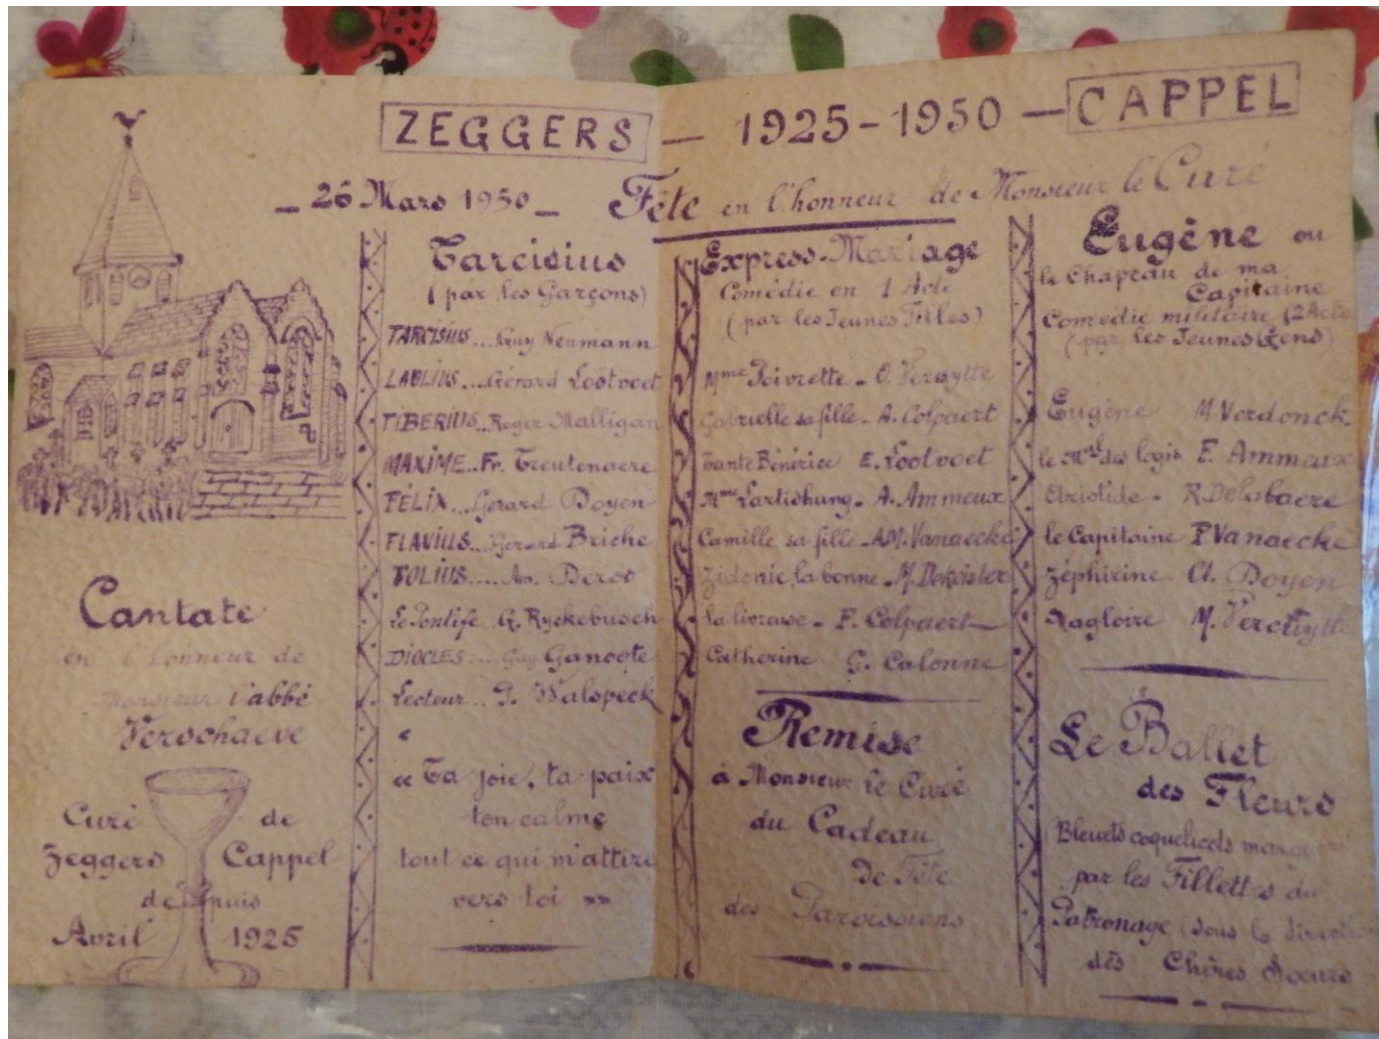 ZEGGERS — 1925-1950 — CAPPEL
— 26 Mars 1950 — Fête en l'honneur de Monsieur le Curé
Cantate
en l'honneur de
Monsieur l'abbé
Verschaeve
Curé de
Zeggers Cappel
depuis
Avril 1925
Tarcisius
(par les Garçons)
TARCISIUS... Guy Neumann
LABLIUS.... Gérard Lootvoet
TIBERIUS.. Roger Malligan
MAXIME.. Fr. Treutenaere
FÉLIX... Gerard Doyen
FLAVIUS... Gerard Briche
TULIUS..... An. Deroo
Le Pontife G. Ryckebusch
DIOCLES.... Guy Gancote
Lecteur .. Walspeck
«
« Ta joie, ta paix
ton calme
tout ce qui m'attire
vers toi »
Express-Mariage
Comédie en 1 Acte
(par les Jeunes Filles)
Mme Poivrette - O. Verwytte
Gabrielle sa fille - A. Colpaert
Tante Bénérice E. Lootvoet
Mme Lartishung - A. Ammeux
Camille sa fille - AM. Vanaecke
Zidonie, la bonne - M.
la livreuse - F. Colpaert
Catherine G. Calonne
Remise
à Monsieur le Curé
du Cadeau
de Fête
des Paroissiens
Eugène ou
le Chapeau de ma
Capitaine
Comédie militaire (2 Actes
(par les Jeunes Gens)
Eugène M. Verdonck
le Mal des logis E. Ammeux
R. Delabaere
le Capitaine F. Vanaecke
Zéphirine Ct. Doyen
M.
Le Ballet
des Fleurs
(Bleuets coquelicots
par les Fillettes du
Patronage (sous la direction
dès Chères Sœurs